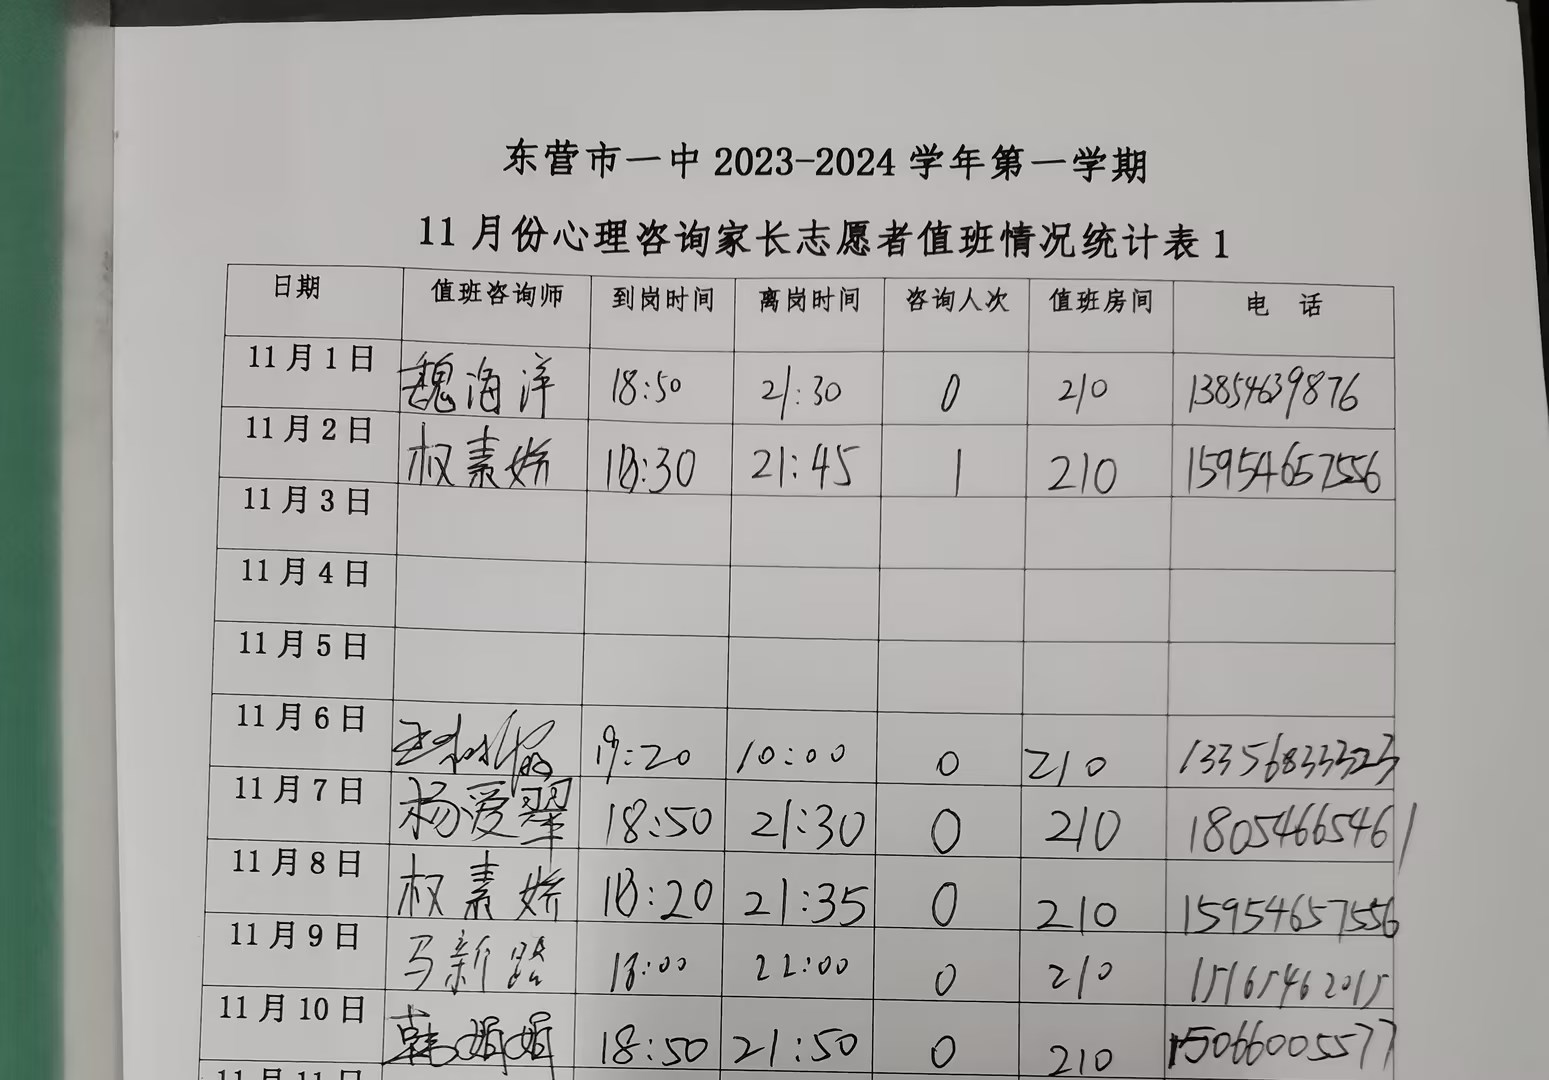 东营市一中 2023-2024 学年第一学期
11 月份心理咨询家长志愿者值班情况统计表 1
日期 值班咨询师 到岗时间 离岗时间 咨询人次 值班房间 电 话
11 月 1 日 魏海洋 18:50 21:30 0 210 13854639876
11 月 2 日 权素娇 18:30 21:45 1 210 15954657556
11 月 3 日
11 月 4 日
11 月 5 日
11 月 6 日 19:20 10:00 0 210 13356833323
11 月 7 日 杨爱翠 18:50 21:30 0 210 18054665461
11 月 8 日 权素娇 18:20 21:35 0 210 15954657556
11 月 9 日 马新路 18:00 22:00 0 210 15165462015
11 月 10 日 韩娟娟 18:50 21:50 0 210 15066005577
11 月 11 日